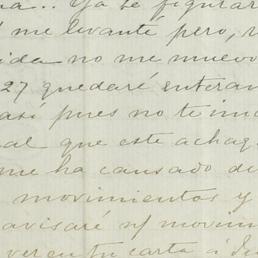 Ya se figurar
me levante pero,
no me muevo
27 quedaré enteram
así pues no te in
al que este achaq
me ha causado de
movimientos y
avisaré
ver en tu carta á